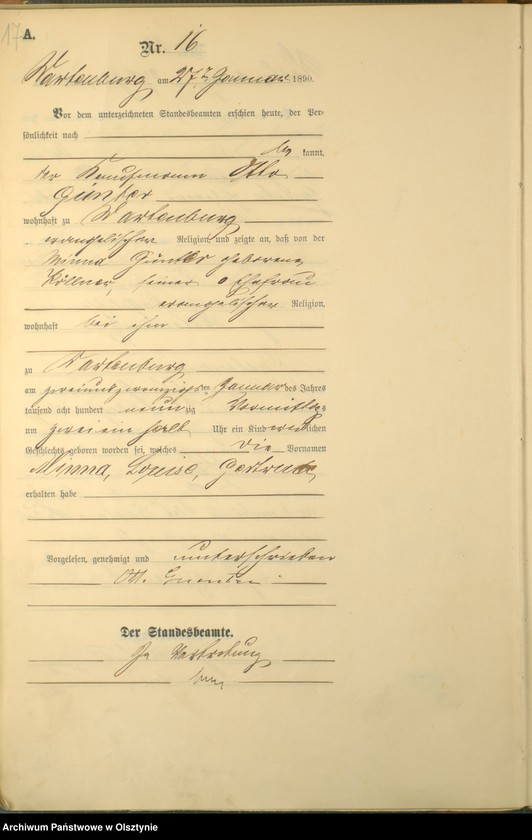 17
A.
Nr. 16
Wartenburg am 27ten Januar 1890.
Vor dem unterzeichneten Standesbeamten erschien heute, der Per-
sönlichkeit nach
be kannt,
der Kaufmann Otto
Günter
wohnhaft zu Wartenburg
evangelischer Religion, und zeigte an, daß von der
Minna Günter geborene
Köllner, seiner Ehefrau
evangelischer Religion,
wohnhaft bei ihm
zu Wartenburg
am zweiundzwanzigsten Januar des Jahres
tausend acht hundert neunzig Vormittags
um zwei ein halb Uhr ein Kind weiblichen
Geschlechts geboren worden sei, welches die Vornamen
Minna, Louise, Gertrude
erhalten habe
Vorgelesen, genehmigt und unterschrieben
Otto
Der Standesbeamte.
In Vertretung
Archiwum Państwowe w Olsztynie